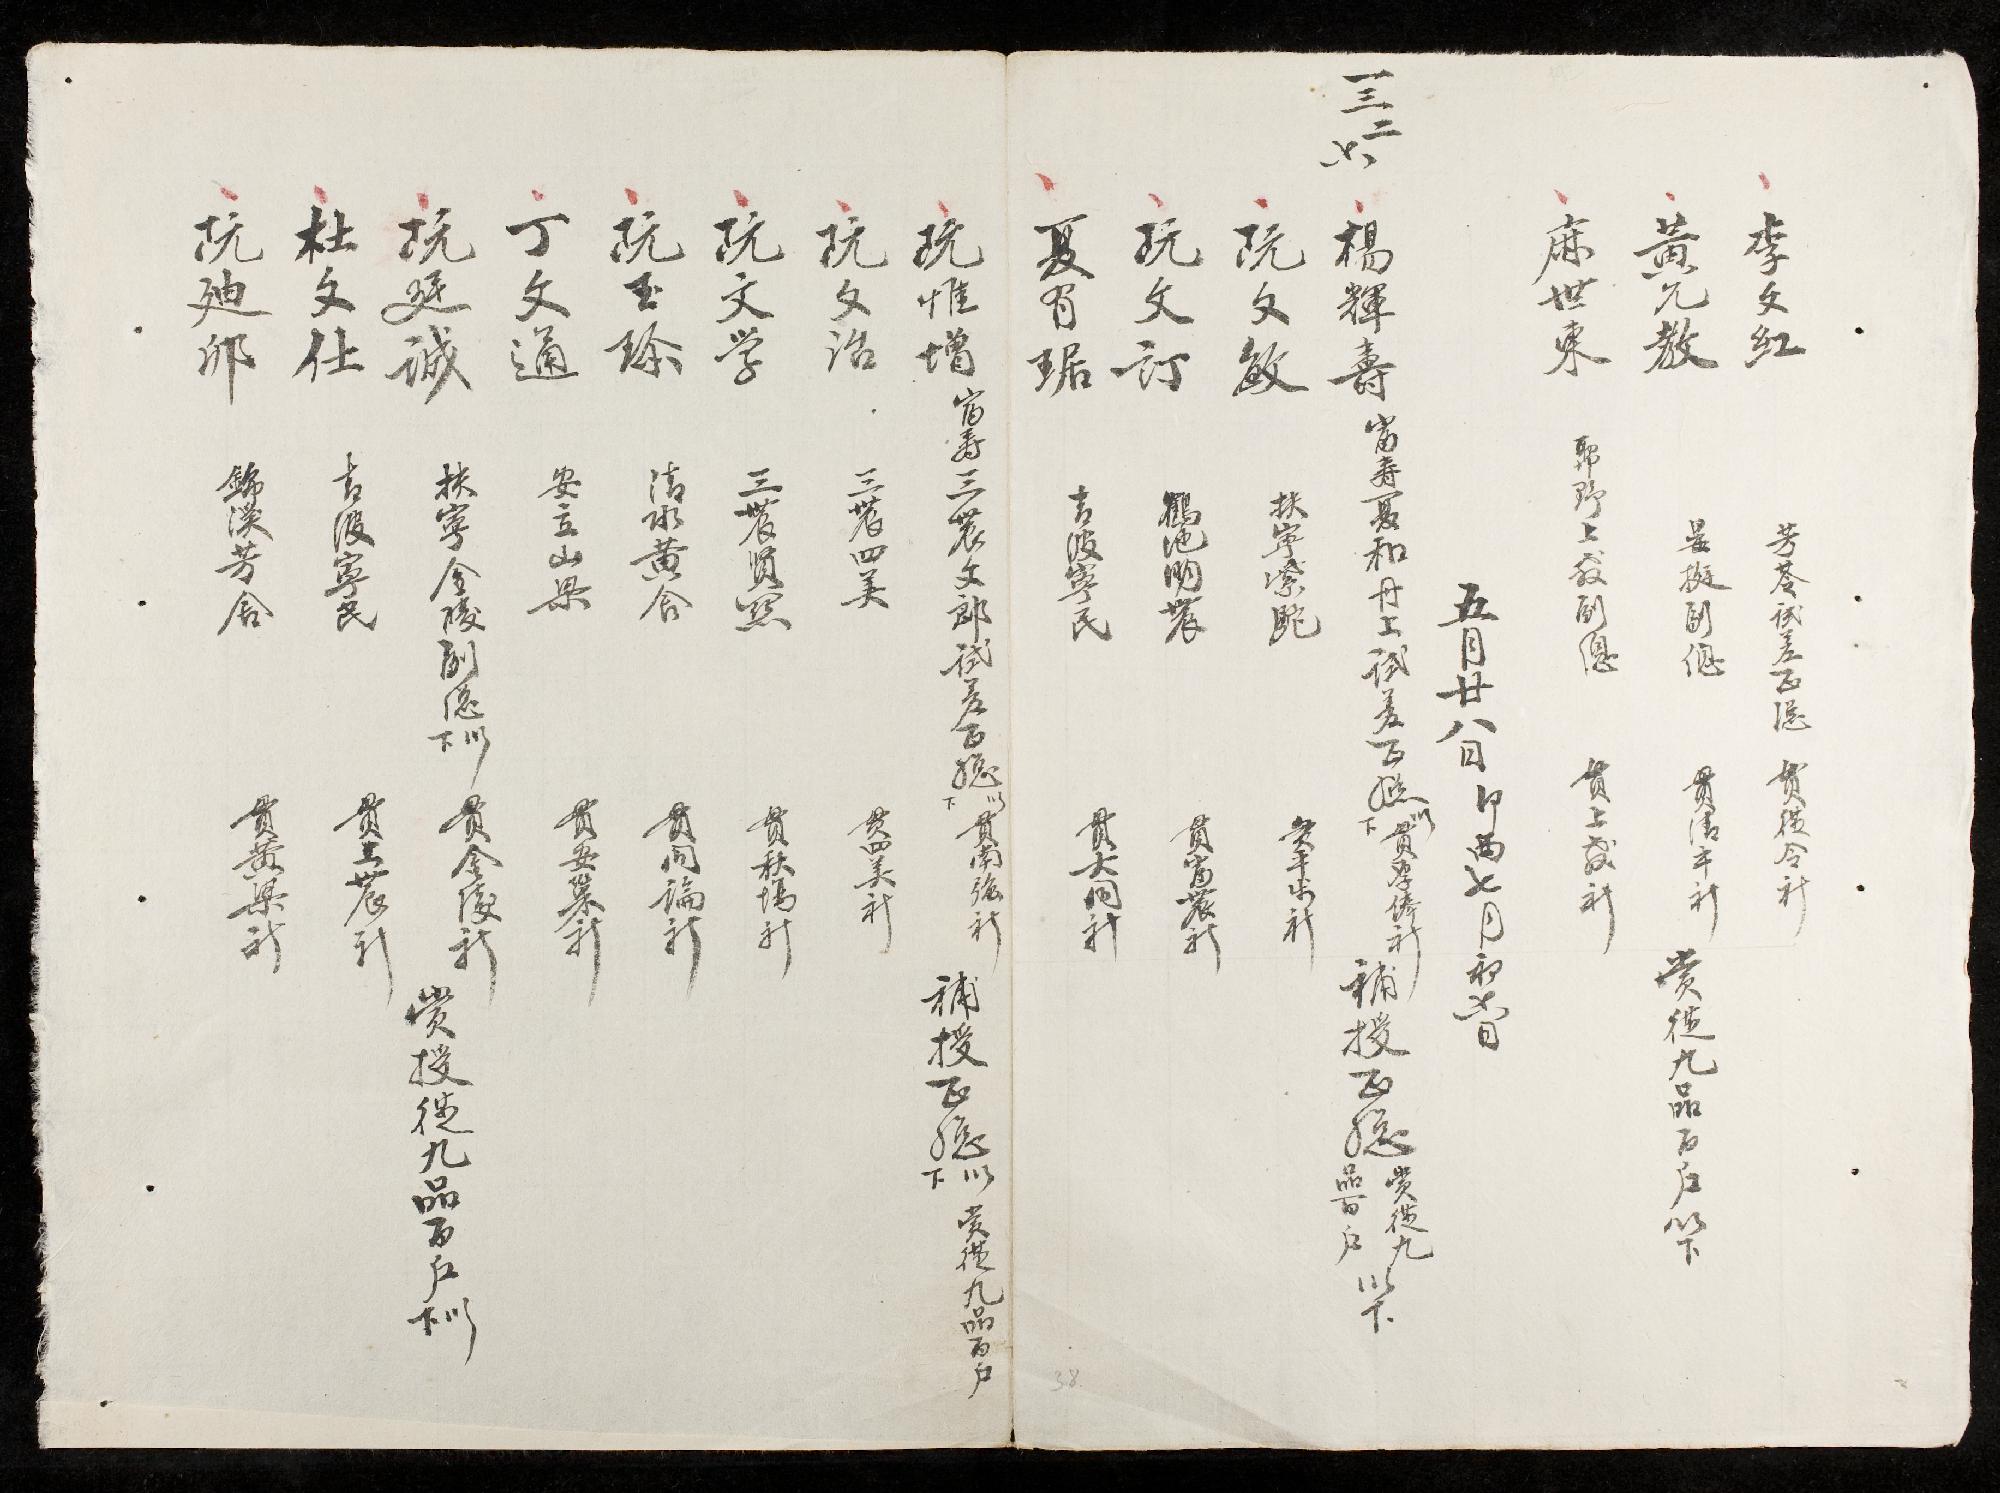 李文紅 芳苓試差正總 貫從令社
黃元教 晏挺副總 貫清平社 賞從九品百户以下
麻世東 聊野上教副總 貫上教社
五月廿八日 卯酉七月初七日
三二六
楊輝壽 富壽夏和丹上試差正總以下 貫厚俸社 補授正總 賞從九品百户以下
阮文敏 扶寧紫駝 貫平步社
阮文訂 鶴池明農 貫富農社
夏有琚 吉波寧民 貫大同社
阮惟增 富壽三農文郎試差正總以下 貫南強社 補授正總以下 賞從九品百户
阮文治 三農四美 貫四美社
阮文学 三農賢 貫秋塢社
阮玉珎 清水黃舍 貫同論社
丁文通 安立山梁 貫安墓社
阮廷誠 扶寧金陵副總以下 貫金陵社 賞授從九品百户以下
杜文仕 吉波寧民 貫上農社
阮廸卯 錦溪芳舍 貫黃梁社
38